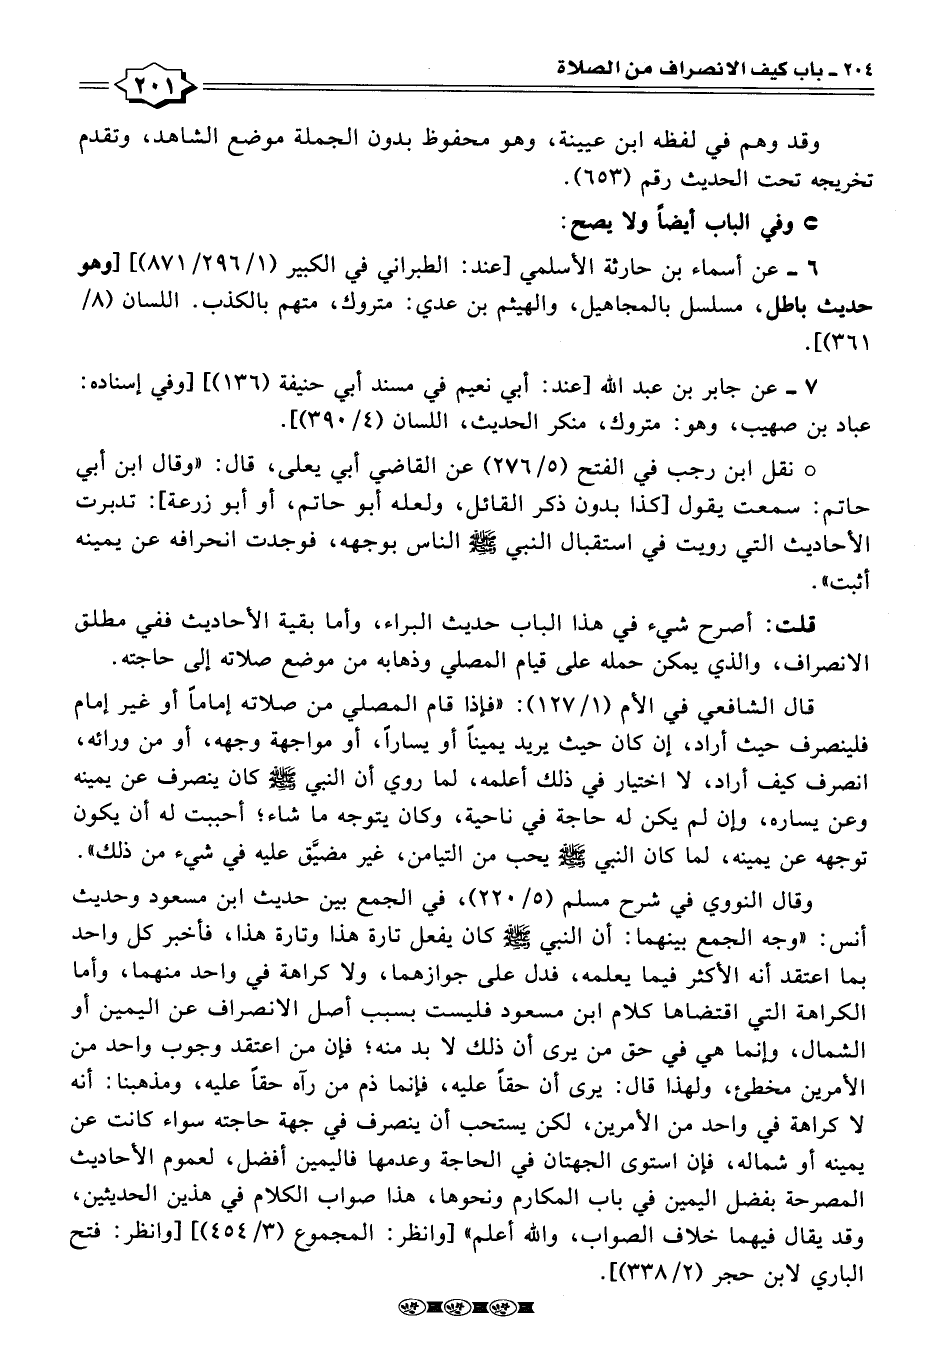 ٢٠٤ - باب كيف الانصراف من الصلاة
٢٠١
وقد وهم في لفظه ابن عيينة، وهو محفوظ بدون الجملة موضع الشاهد، وتقدم
تخريجه تحت الحديث رقم (٦٥٣).
⊂ وفي الباب أيضاً ولا يصح:
٦ - عن أسماء بن حارثة الأسلمي [عند: الطبراني في الكبير (١/٢٩٦/٨٧١)] [وهو
حديث باطل، مسلسل بالمجاهيل، والهيثم بن عدي: متروك، متهم بالكذب. اللسان (٨/
٣٦١)].
٧ - عن جابر بن عبد الله [عند: أبي نعيم في مسند أبي حنيفة (١٣٦)] [وفي إسناده:
عباد بن صهيب، وهو: متروك، منكر الحديث، اللسان (٤/٣٩٠)].
○ نقل ابن رجب في الفتح (٥/٢٧٦) عن القاضي أبي يعلى، قال: «وقال ابن أبي
حاتم: سمعت يقول [كذا بدون ذكر القائل، ولعله أبو حاتم، أو أبو زرعة]: تدبرت
الأحاديث التي رويت في استقبال النبي ﷺ الناس بوجهه، فوجدت انحرافه عن يمينه
أثبت».
قلت: أصرح شيء في هذا الباب حديث البراء، وأما بقية الأحاديث ففي مطلق
الانصراف، والذي يمكن حمله على قيام المصلي وذهابه من موضع صلاته إلى حاجته.
قال الشافعي في الأم (١/١٢٧): «فإذا قام المصلي من صلاته إماماً أو غير إمام
فلينصرف حيث أراد، إن كان حيث يريد يميناً أو يساراً، أو مواجهة وجهه، أو من ورائه،
انصرف كيف أراد، لا اختيار في ذلك أعلمه، لما روي أن النبي ﷺ كان ينصرف عن يمينه
وعن يساره، وإن لم يكن له حاجة في ناحية، وكان يتوجه ما شاء؛ أحببت له أن يكون
توجهه عن يمينه، لما كان النبي ﷺ يحب من التيامن، غير مضيَّق عليه في شيء من ذلك».
وقال النووي في شرح مسلم (٥/٢٢٠)، في الجمع بين حديث ابن مسعود وحديث
أنس: «وجه الجمع بينهما: أن النبي ﷺ كان يفعل تارة هذا وتارة هذا، فأخبر كل واحد
بما اعتقد أنه الأكثر فيما يعلمه، فدل على جوازهما، ولا كراهة في واحد منهما، وأما
الكراهة التي اقتضاها كلام ابن مسعود فليست بسبب أصل الانصراف عن اليمين أو
الشمال، وإنما هي في حق من يرى أن ذلك لا بد منه؛ فإن من اعتقد وجوب واحد من
الأمرين مخطئ، ولهذا قال: يرى أن حقاً عليه، فإنما ذم من رآه حقاً عليه، ومذهبنا: أنه
لا كراهة في واحد من الأمرين، لكن يستحب أن ينصرف في جهة حاجته سواء كانت عن
يمينه أو شماله، فإن استوى الجهتان في الحاجة وعدمها فاليمين أفضل، لعموم الأحاديث
المصرحة بفضل اليمين في باب المكارم ونحوها، هذا صواب الكلام في هذين الحديثين،
وقد يقال فيهما خلاف الصواب، والله أعلم» [وانظر: المجموع (٣/٤٥٤)] [وانظر: فتح
الباري لابن حجر (٢/٣٣٨)].